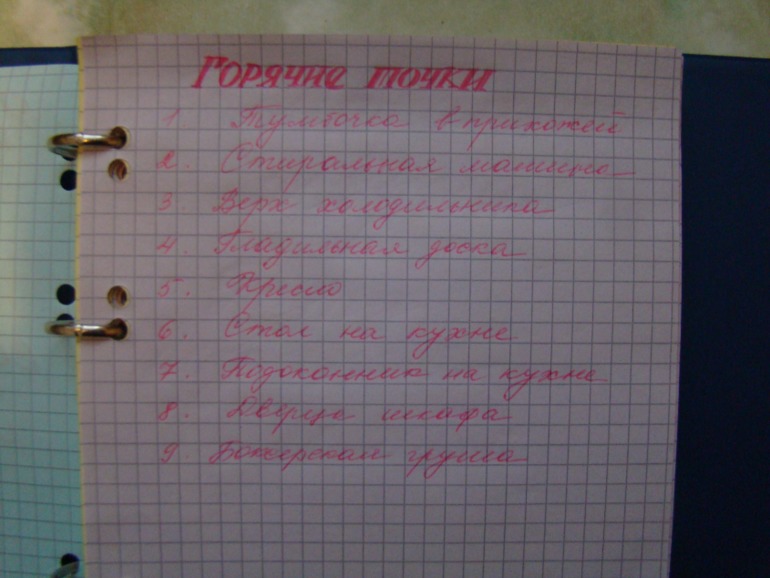 Горячие точки
1. Тумбочка в прихожей
2. Стиральная машина
3. Верх холодильника
4. Гладильная доска
5. Кресло
6. Стол на кухне
7. Подоконник на кухне
8. Дверца шкафа
9. Боксерская груша